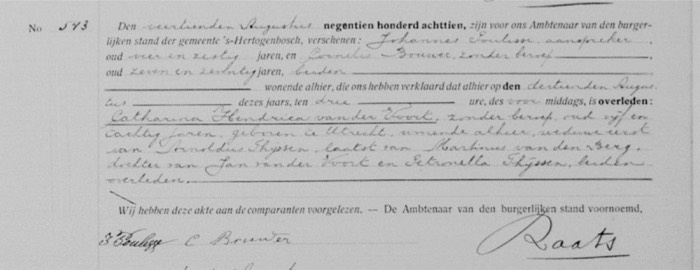 No 543 Den veertienden Augustus negentien honderd achttien, zijn voor ons Ambtenaar van den burger-
lijken stand der gemeente 's-Hertogenbosch, verschenen: Johannes aanspreker
oud vier en zestig jaren, en Cornelis Brouwer, zonder beroep
oud zeven en zeventig jaren, beiden
wonende alhier, die ons hebben verklaard dat alhier op den dertienden Augus-
tus dezes jaars, ten drie ure, des voor middags, is overleden:
Catharina Hendrica van der Voort, zonder beroep, oud vijf en
tachtig jaren, geboren te Utrecht, wonende alhier, weduwe eerst
van Arnoldus Thyssen, laatst van Martinus van den Berg,
dochter van Jan van der Voort en Petronella Thyssen, beiden
overleden.
Wij hebben deze akte aan de comparanten voorgelezen. — De Ambtenaar van den burgerlijken stand voornoemd,
C Brouwer Raats